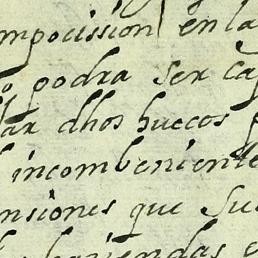 mpocission en la
podra ser ca
ar dhos huecos
incombeniente
nsiones que Su
haziendas